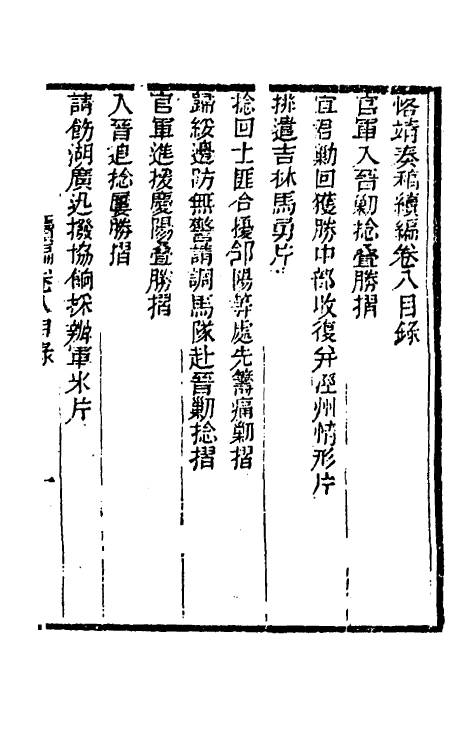 恪靖奏稿續編卷八目錄
官軍入晉勦捻疊勝摺
宜君勦回獲勝中部收復并涇州情形片
排遣吉林馬勇片
捻回土匪合擾郃陽等處先籌痛勦摺
歸綏邊防無警請調馬隊赴晉勦捻摺
官軍進援慶陽疊勝摺
入晉追捻屢勝摺
請飭湖廣迅撥協餉採辦軍米片
續編卷八目錄 一